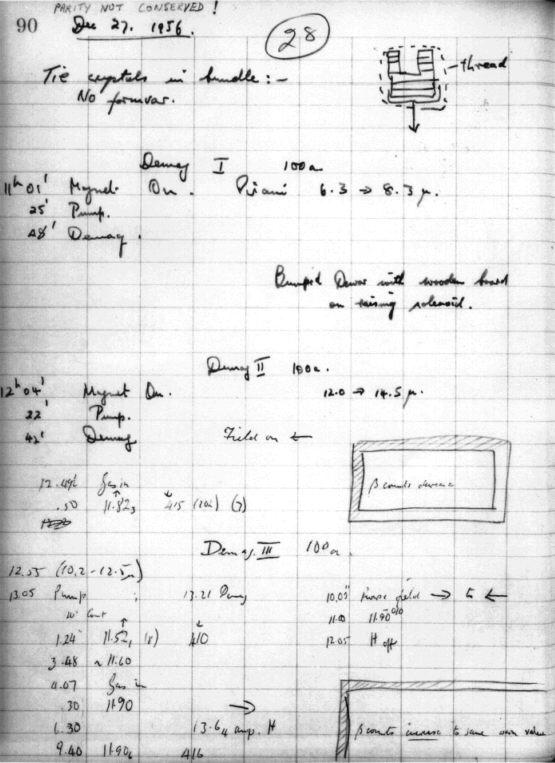 PARITY NOT CONSERVED!
90 Dec 27. 1956.
28
Tie crystals in bundle:-
No formvar.
thread
Demag I 100a.
11h 01' Magnet On. Pirani 6.3 → 8.3 μ.
25' Pump.
48' Demag.
Bumped Dewar with wooden board
on raising solenoid.
Demag II 100a.
12h 04' Magnet On. 12.0 → 14.5 μ.
22' Pump.
42' Demag Field on ←
12.49½ Gas in
β counts decrease
.50 11.82₃ 415 (20s) (3)
Demag. III 100a.
12.55 (10.2-12.5μ)
13.05 Pump 13.21 Demag 10.05 reverse field → to ←
11.00 11.90
1.24 11.52₁ (8) 410 12.05 H off
3.48 ~11.60
4.07 Gas in
.30 11.90 →
6.30 13.6₄ amp. H
β counts increase to same own value
9.40 11.90₆ 416